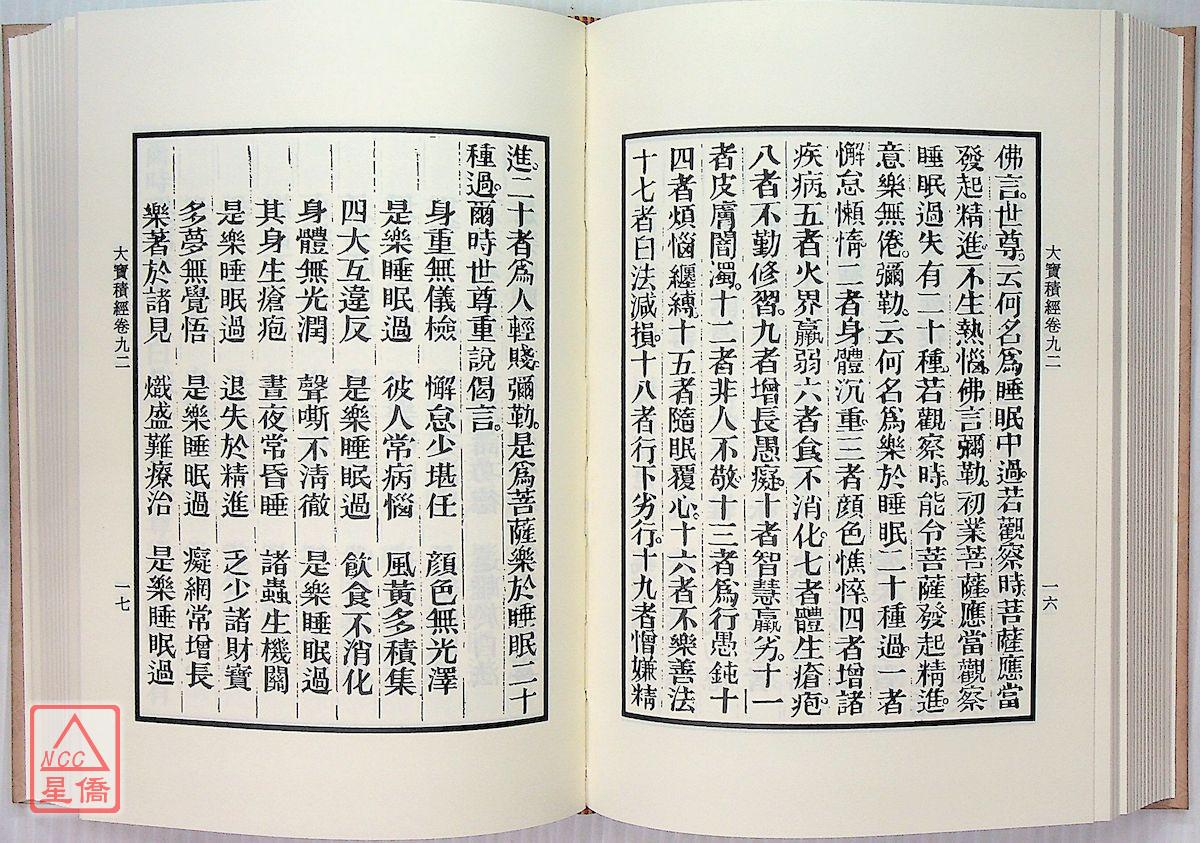 大寶積經卷九二
一六
佛言。世尊。云何名爲睡眠中過。若觀察時。菩薩應當
發起精進。不生熱惱。佛言彌勒。初業菩薩。應當觀察
睡眠過失有二十種。若觀察時。能令菩薩發起精進。
意樂無倦。彌勒。云何名爲樂於睡眠二十種過。一者
懈怠懶惰。二者身體沉重。三者顏色憔悴。四者增諸
疾病。五者火界羸弱。六者食不消化。七者體生瘡疱。
八者不勤修習。九者增長愚癡。十者智慧羸劣。十一
者皮膚闇濁。十二者非人不敬。十三者爲行愚鈍。十
四者煩惱纏縛。十五者隨眠覆心。十六者不樂善法。
十七者白法減損。十八者行下劣行。十九者憎嫌精
進。二十者爲人輕賤。彌勒。是爲菩薩樂於睡眠二十
種過。爾時世尊重說偈言。
身重無儀檢 懈怠少堪任 顏色無光澤
是樂睡眠過 彼人常病惱 風黃多積集
四大互違反 是樂睡眠過 飲食不消化
身體無光潤 聲嘶不淸徹 是樂睡眠過
其身生瘡疱 晝夜常昏睡 諸蟲生機關
是樂睡眠過 退失於精進 乏少諸財寶
多夢無覺悟 是樂睡眠過 癡網常增長
樂著於諸見 熾盛難療治 是樂睡眠過
大寶積經卷九二
一七
NCC
星僑